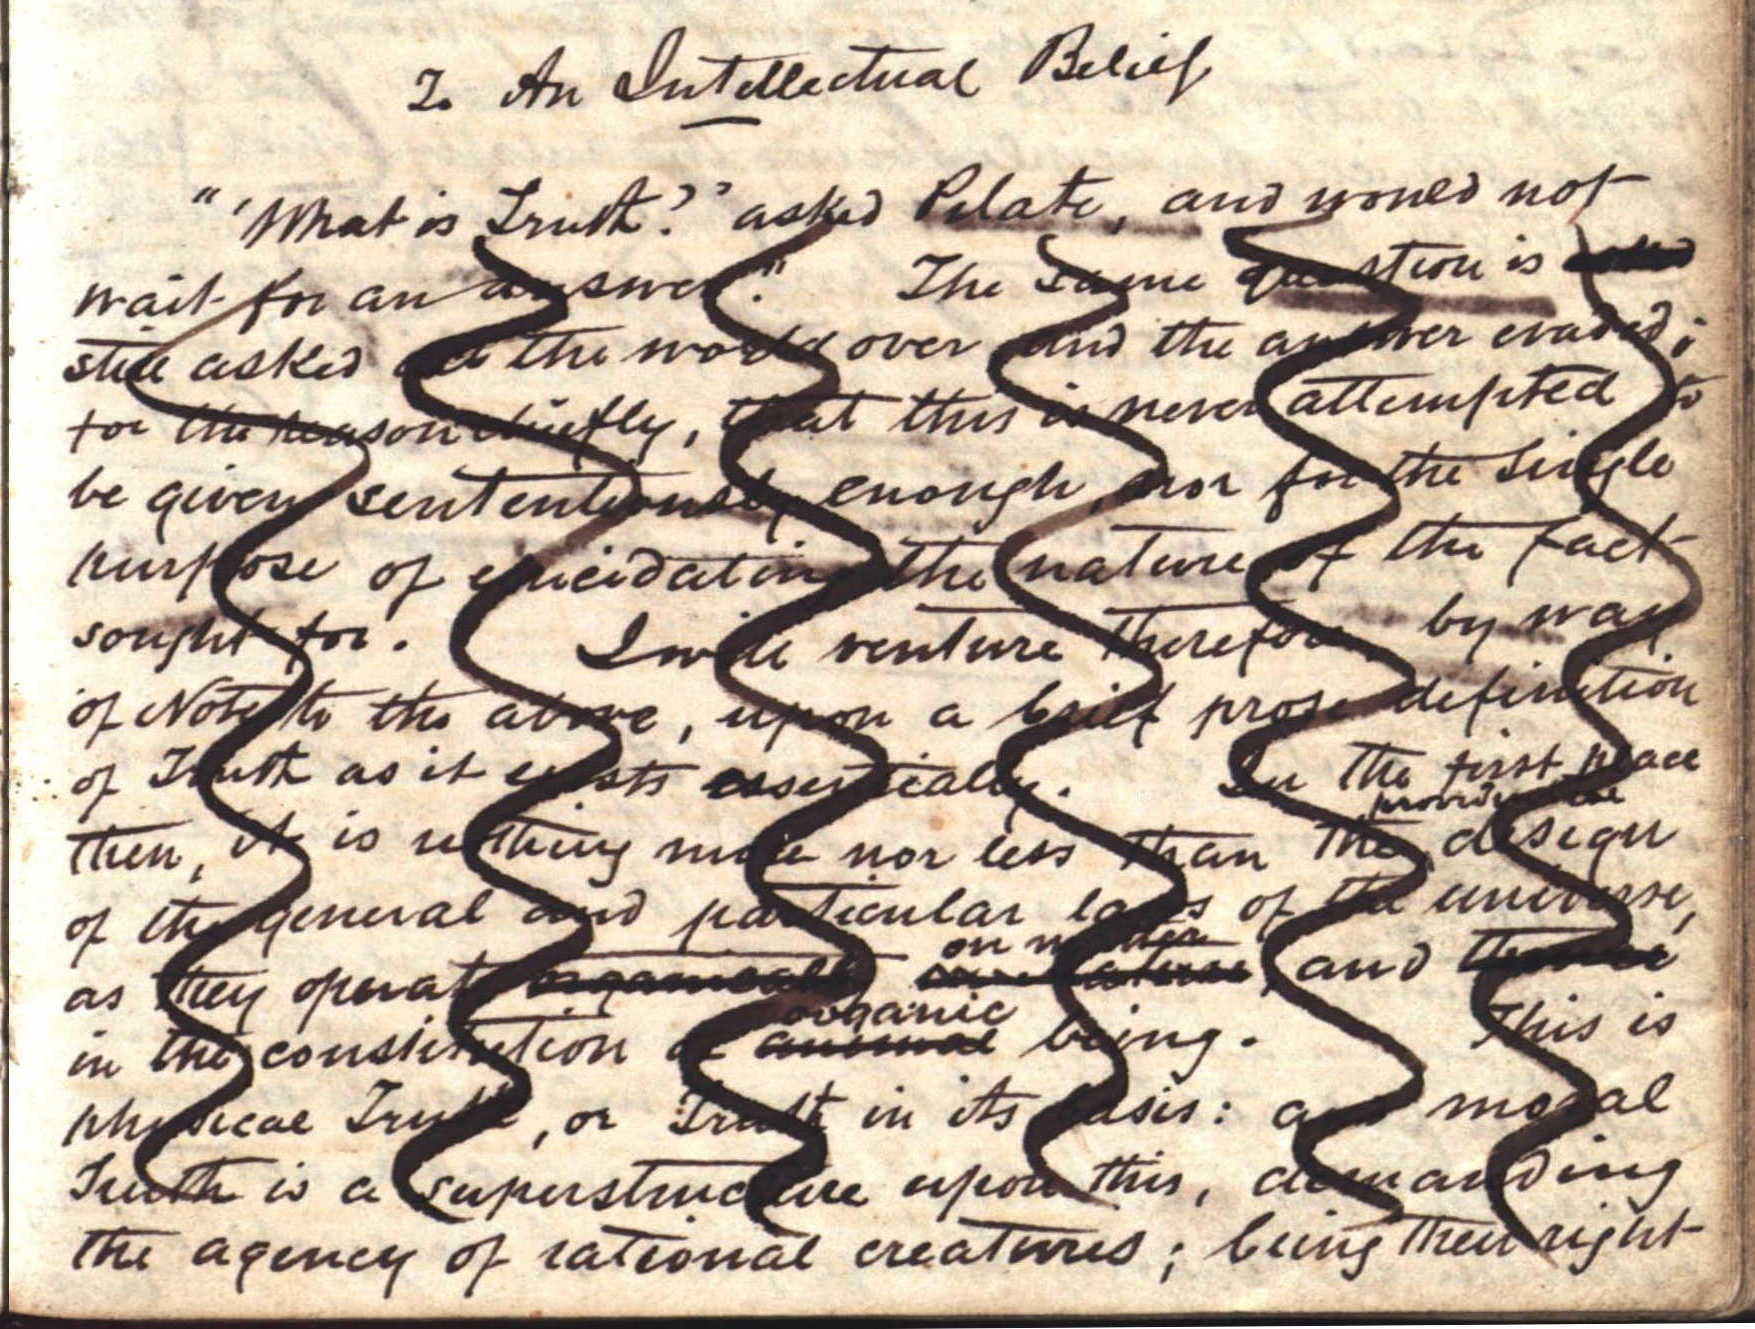 2. An Intellectual Belief
"'What is Truth?' asked Pilate, and would not
wait for an answer." The same question is
still asked all the world over and the answer evaded;
for the reason chiefly, that this is never attempted to
be given sententiously enough, nor for the single
purpose of elucidating the nature of the fact
sought for. I will venture therefore, by way
of Note to the above, upon a brief prose definition
of Truth as it exists essentially. In the first place
then, it is nothing more nor less than the design
of the general and particular laws of the universe,
on matter
as they operate organically and thence
organic
in the constitution of animal being. This is
physical Truth, or Truth in its basis: and moral
Truth is a superstructure upon this, demanding
the agency of rational creatures; being their right